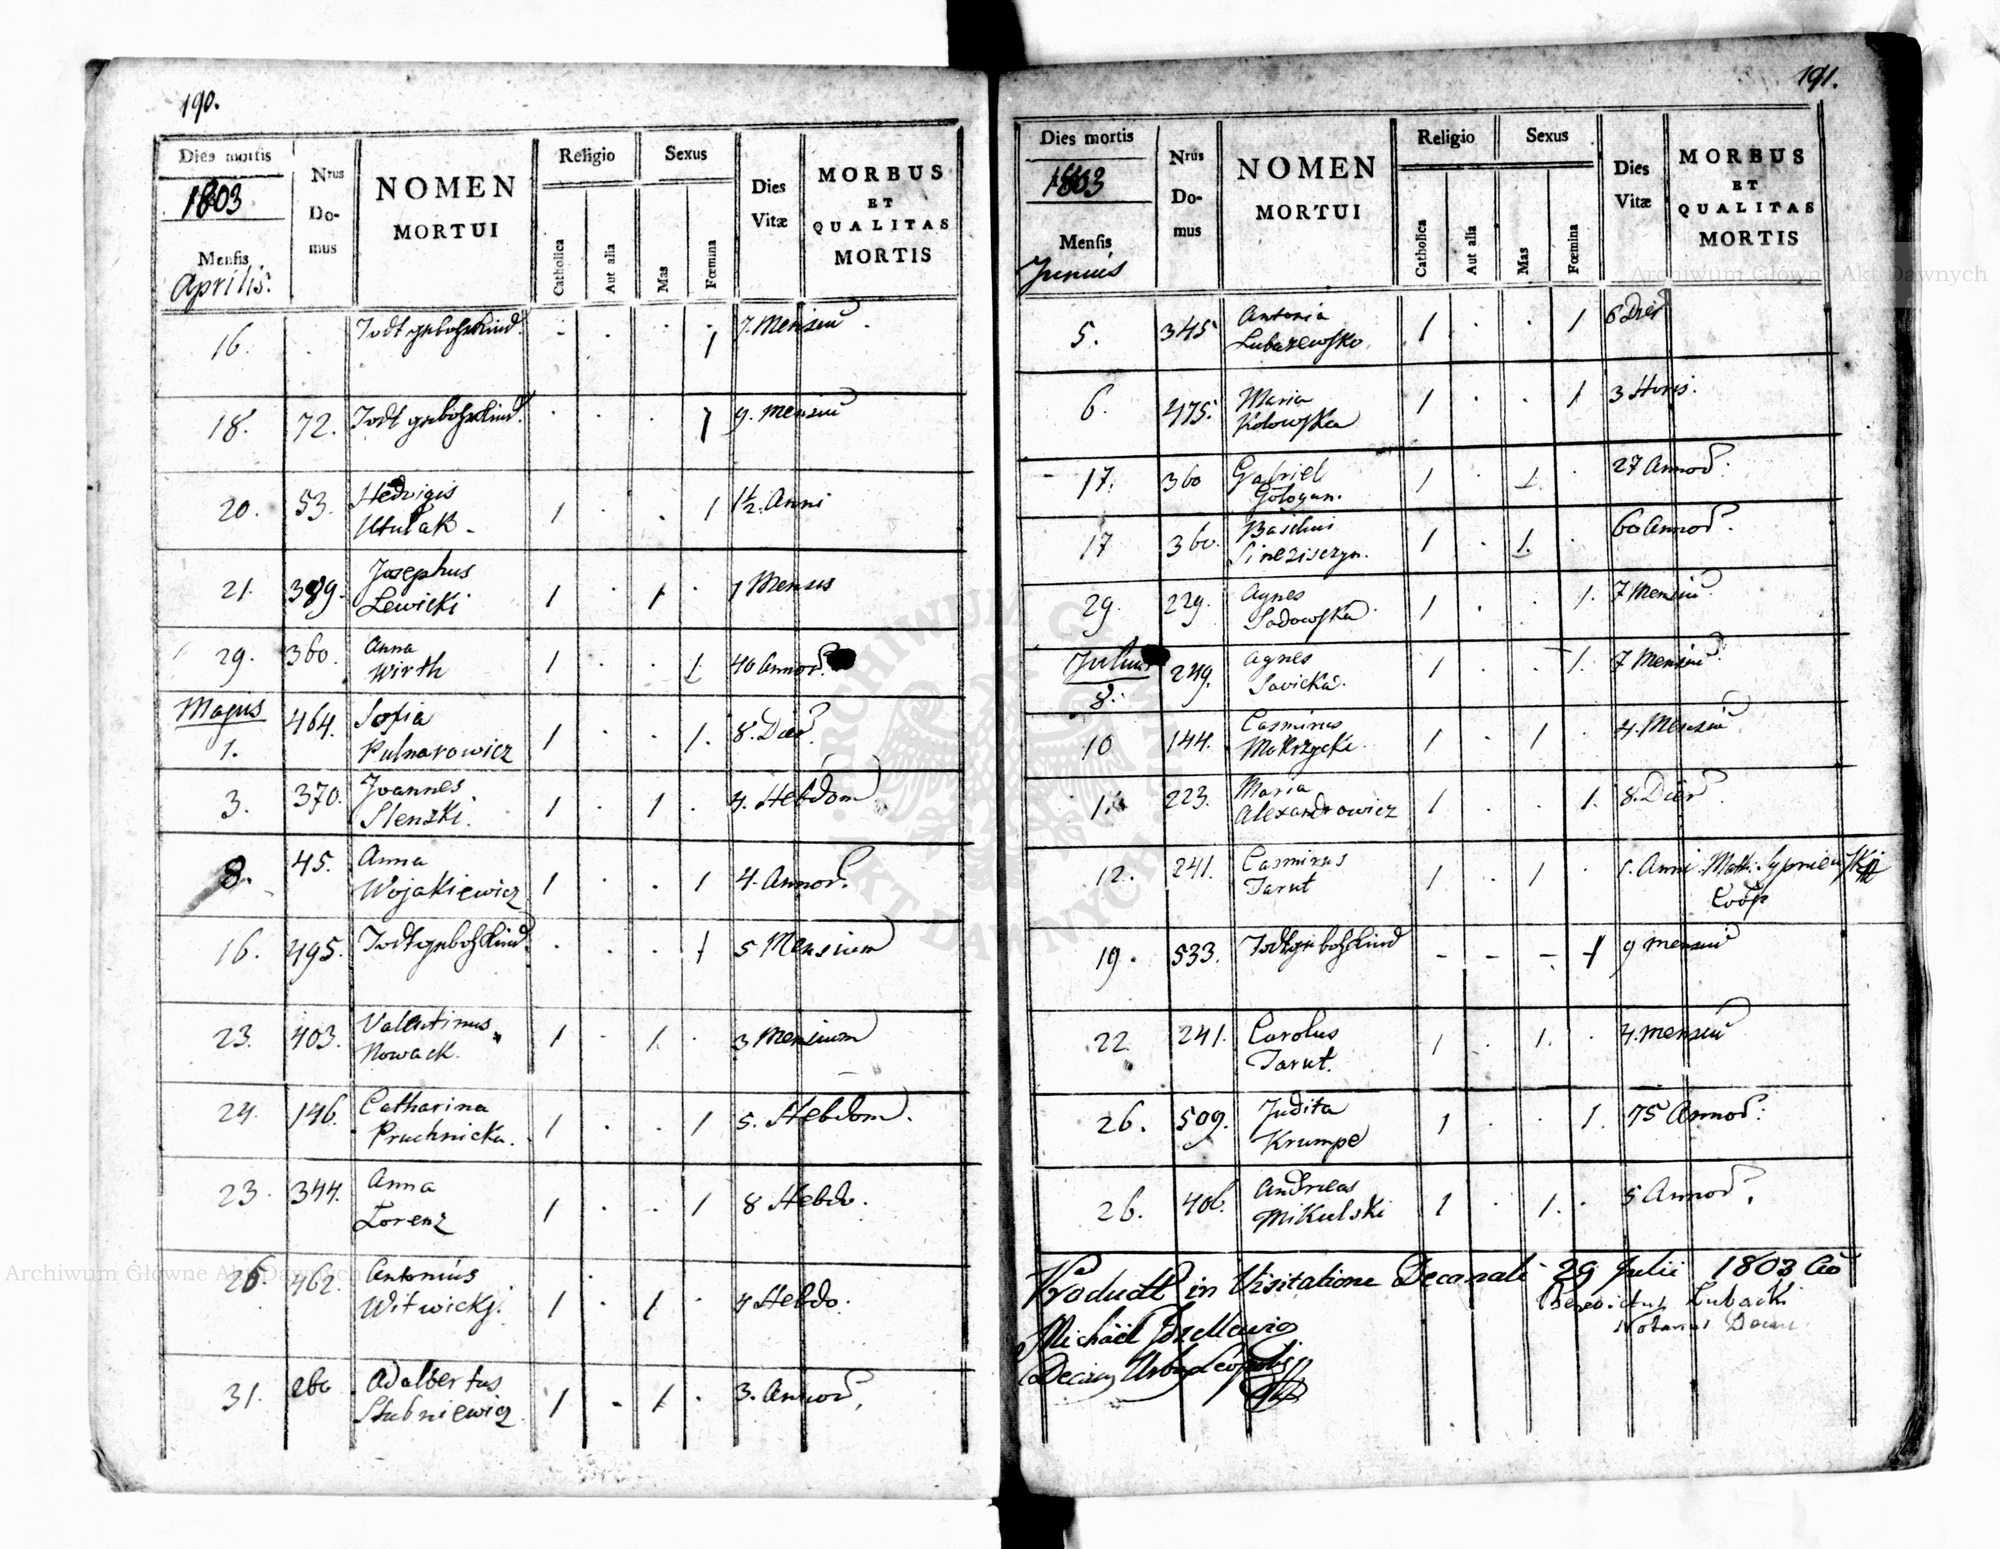 190.
Dies mortis
1803
Mensis
Aprilis.
Nrus Do-mus
NOMEN MORTUI
Religio
Catholica
Aut alia
Sexus
Mas
Fœmina
Dies Vitæ
MORBUS ET QUALITAS MORTIS
16. . Todtgebohrkind. - . . 1 7. Mensiu
18. 72. Todtgebohrkind. . . . 1 9. mensiu
20. 53. Hedvigis
Utulak. 1 . . 1 1½ Anni
21. 389. Josephus
Lewicki 1 . 1 . 1 Mensis
29. 360. Anna
Wirth 1 . . 1 40 Annor.
Majus
1. 464. Sofia
Pulnarowicz 1 . . 1. 8. Dier
3. 370. Joannes
Slenzki. 1 . 1 . 4. Hebdom
8. 45. Anna
Wojakiewicz 1 . . 1 4. Annor.
16. 495. Todtgebohrkind . . . 1 5 Mensium
23. 403. Valentinus
Nowack. 1 . 1. . 3 Mensium
24. 146. Catharina
Pruchnicka. 1 . . 1 5. Hebdom.
23. 344. Anna
Lorenz 1 . . 1 8 Hebdo.
26. 462. Antonius
Witwickj. 1 . 1 . 4 Hebdo.
31. 260 Adalbertus
Stubniewicz 1 . 1 . 3. Annor.
191.
Dies mortis
1803
Mensis
Junius
Nrus Do-mus
NOMEN MORTUI
Religio
Catholica
Aut alia
Sexus
Mas
Fœmina
Dies Vitæ
MORBUS ET QUALITAS MORTIS
5. 345 Antonia
Lubazewska. 1 . . 1 6 Dier
6. 475. Maria
Kolowska 1 . . 1 3 Horis.
17. 360 Gabriel
Gologan. 1 . 1. . 27 Annor.
17 360. Basilius
Sineziszyn. 1 . 1. . 60 Annor.
29. 229. Agnes
Sadowska 1 . . 1. 7 Mensiu
Julius
8. 249. Agnes
Savicka. 1 . . 1. 7 Mensiu
10 144. Casmirus
Mokrzycki. 1 . 1 . 4. Mensiu
11. 223. Maria
Alexandrowicz 1 . . 1. 8. Dier
12. 241. Casmirus
Tarut 1 . 1 . 1. Anni Math:
Coop
19. 533. Todtgebohrkind - - - 1 9 mensiu
22. 241. Carolus
Tarut. 1 . 1. . 4. mensiu
26. 509. Judita
Krumpe 1 . . 1. 75 Annor.
26. 406. Andreas
Mikulski 1 . 1. . 5 Annor.
Product in Visitatione Decanali 29 Julii 1803
Benedictus Lubacki
Notarius
Michäel
Archiwum Główne Akt Dawnych
Archiwum Główne Akt Dawnych
ARCHIWUM GŁÓWNE AKT DAWNYCH